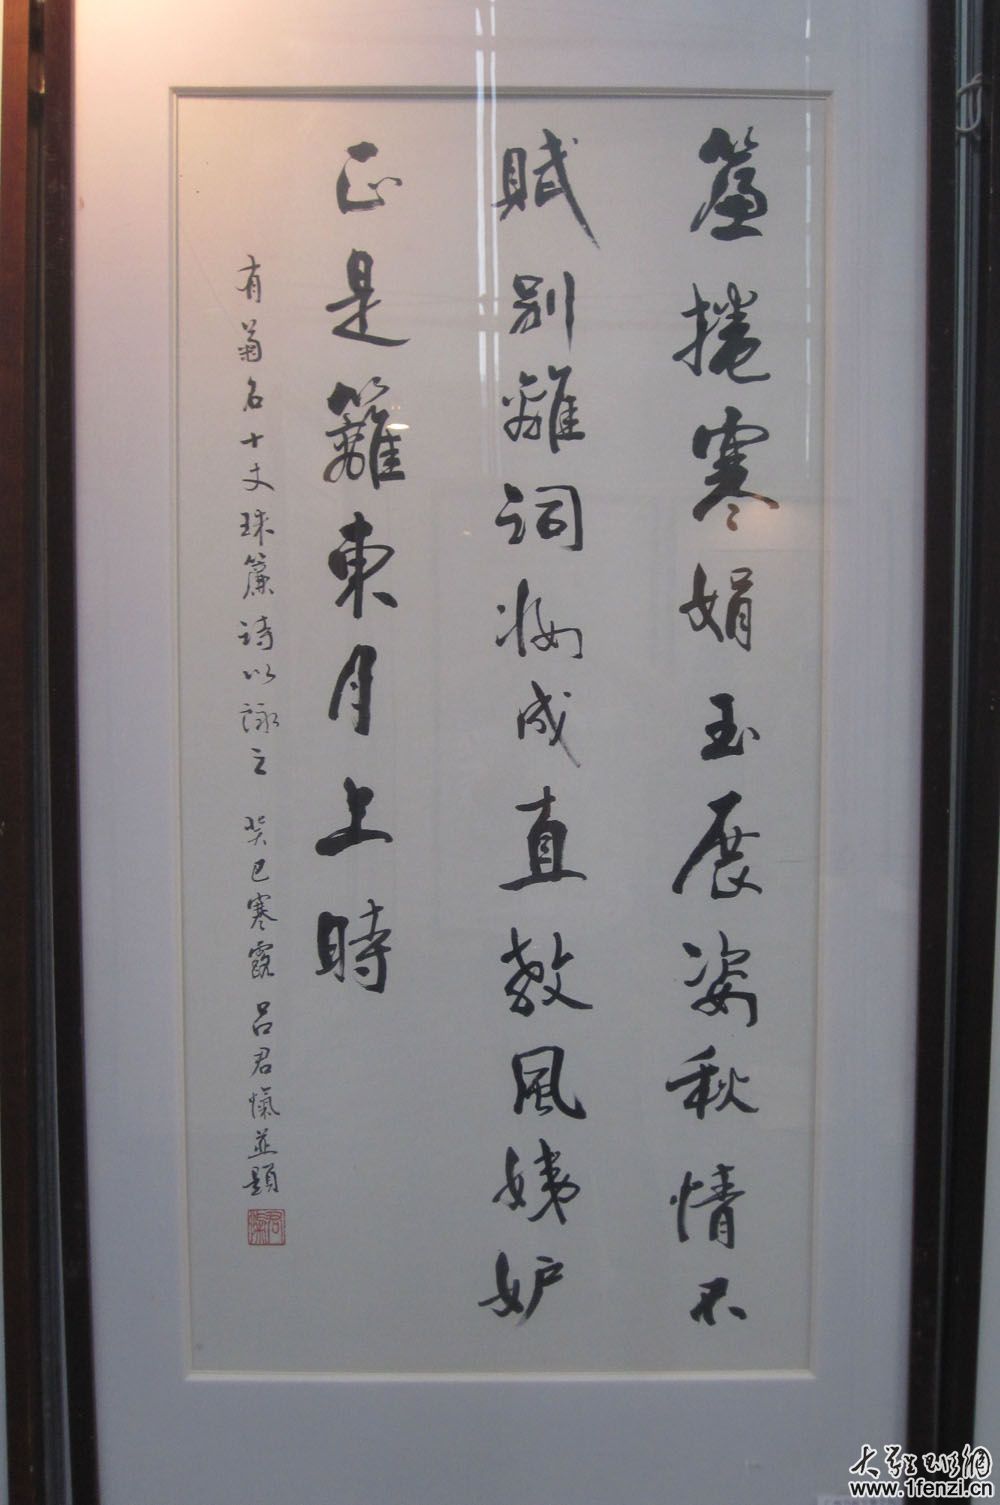 簾捲寒娟玉展姿秋情不
賦別離詞妝成直教風姨妒
正是籬東月上時
有菊名十丈珠簾詩以詠之 癸巳寒露 吕君愾並題
大粤网
www.1fenzi.cn